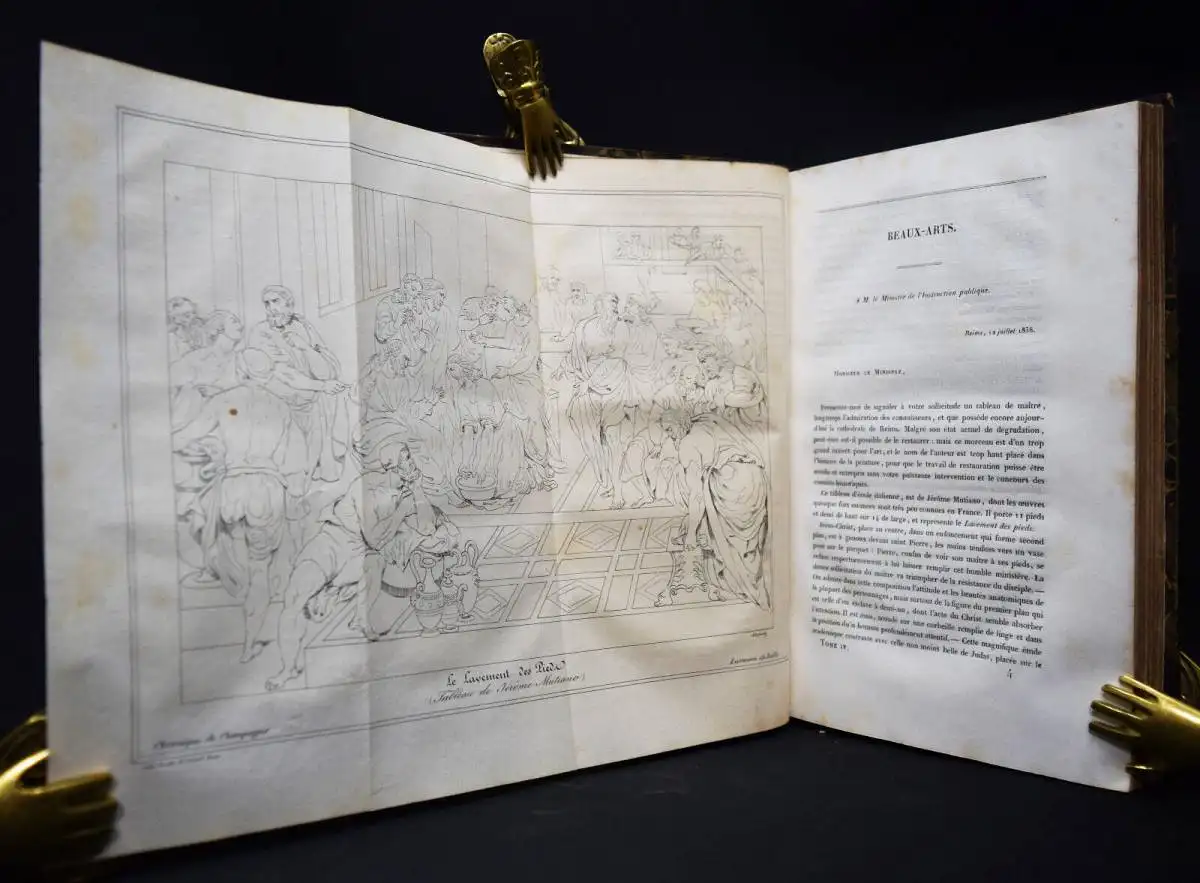 Le Lavement des Pieds
(Tableau de Jérôme Mutiano)
Chronique de Champagne
BEAUX-ARTS.
A M. le Ministre de l'Instruction publique.
Reims, 12 juillet 1838.
MONSIEUR LE MINISTRE,
Permettez-moi de signaler à votre sollicitude un tableau de maître,
longtemps l'admiration des connaisseurs, et que possède encore aujour-
d'hui la cathédrale de Reims. Malgré son état actuel de dégradation,
peut-être est-il possible de le restaurer : mais ce morceau est d'un trop
grand intérêt pour l'art, et le nom de l'auteur est trop haut placé dans
l'histoire de la peinture, pour que le travail de restauration puisse être
entrepris sans votre puissante intervention et le concours des
Ce tableau d'école italienne, est de Jérôme Mutiano, dont les œuvres
quoique fort connues sont très peu connues en France. Il porte 11 pieds
et demi de haut sur 14 de large, et représente le Lavement des pieds.
Jésus-Christ, placé au centre, dans un enfoncement qui forme second
plan, est à genoux devant saint Pierre, les mains tendues vers un vase
posé sur le parquet : Pierre, confus de voir son maître à ses pieds, se
refuse respectueusement à lui laisser remplir cet humble ministère. La
douce sollicitation du maître va triompher de la résistance du disciple. —
On admire dans cette composition l'attitude et les beautés anatomiques de
la plupart des personnages, mais surtout de la figure du premier plan qui
est celle d'un esclave à demi-nu, dont l'acte du Christ semble absorber
l'attention. Il est assis, accoudé sur une corbeille remplie de linge et dans
la position d'un homme profondément attentif. — Cette magnifique étude
académique contraste avec celle non moins belle de Judas, placée sur le
TOME IV.
4